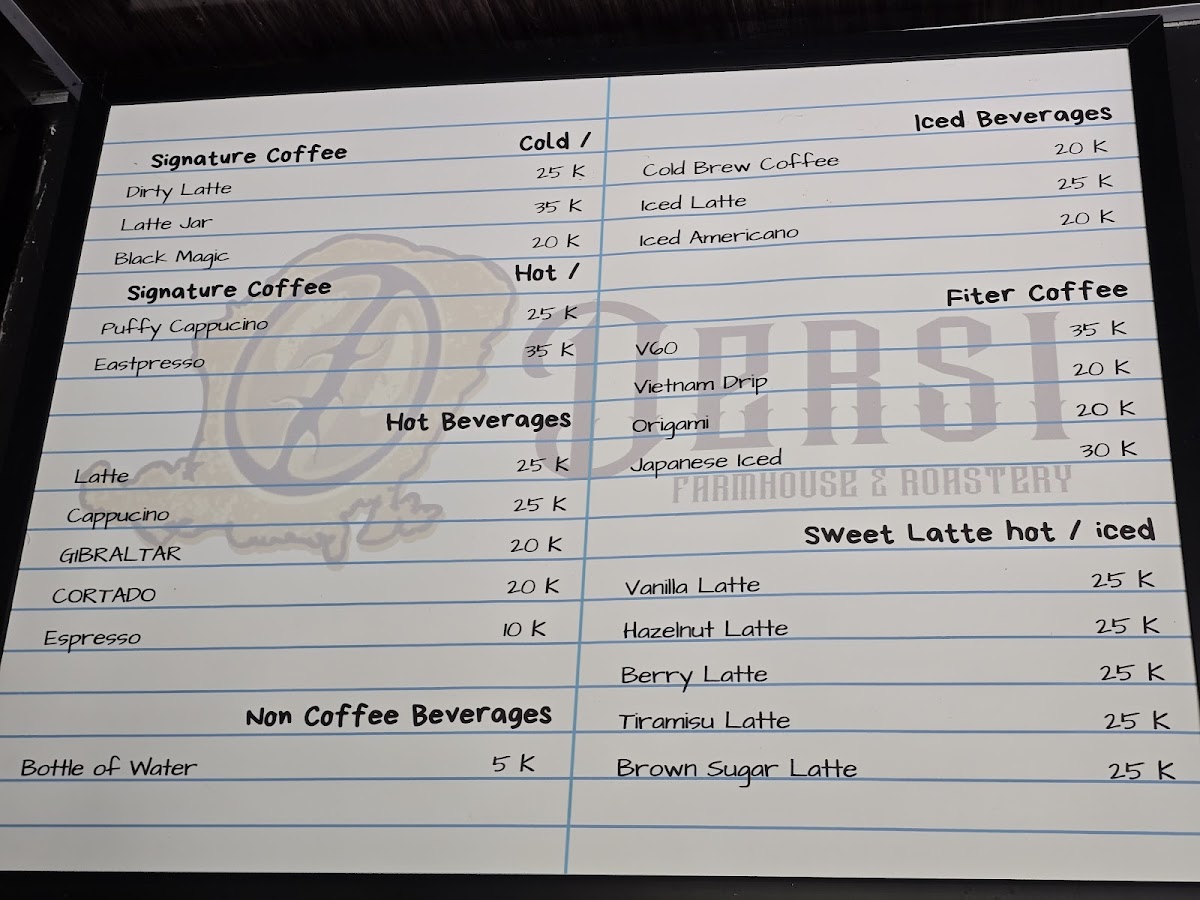 Signature Coffee Cold /
Dirty Latte 25 K
Latte Jar 35 K
Black Magic 20 K
Signature Coffee Hot /
Puffy Cappucino 25 K
Eastpresso 35 K
Hot Beverages
Latte 25 K
Cappucino 25 K
GIBRALTAR 20 K
CORTADO 20 K
Espresso 10 K
Non Coffee Beverages
Bottle of Water 5 K
Iced Beverages
Cold Brew Coffee 20 K
Iced Latte 25 K
Iced Americano 20 K
Fiter Coffee
V60 35 K
Vietnam Drip 20 K
Origami 20 K
Japanese Iced 30 K
DERSI
FARMHOUSE & ROASTERY
Sweet Latte hot / iced
Vanilla Latte 25 K
Hazelnut Latte 25 K
Berry Latte 25 K
Tiramisu Latte 25 K
Brown Sugar Latte 25 K